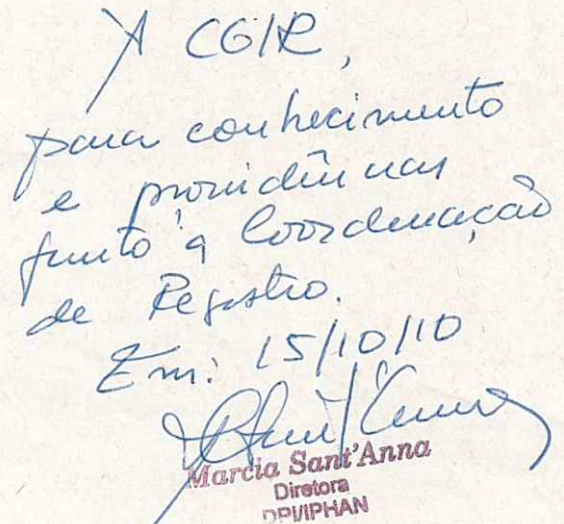 À CGIR,
para conhecimento
e providências
junto à Coordenação
de Registro.
Em: 15/10/10
Marcia Sant'Anna
Diretora
DPI/IPHAN